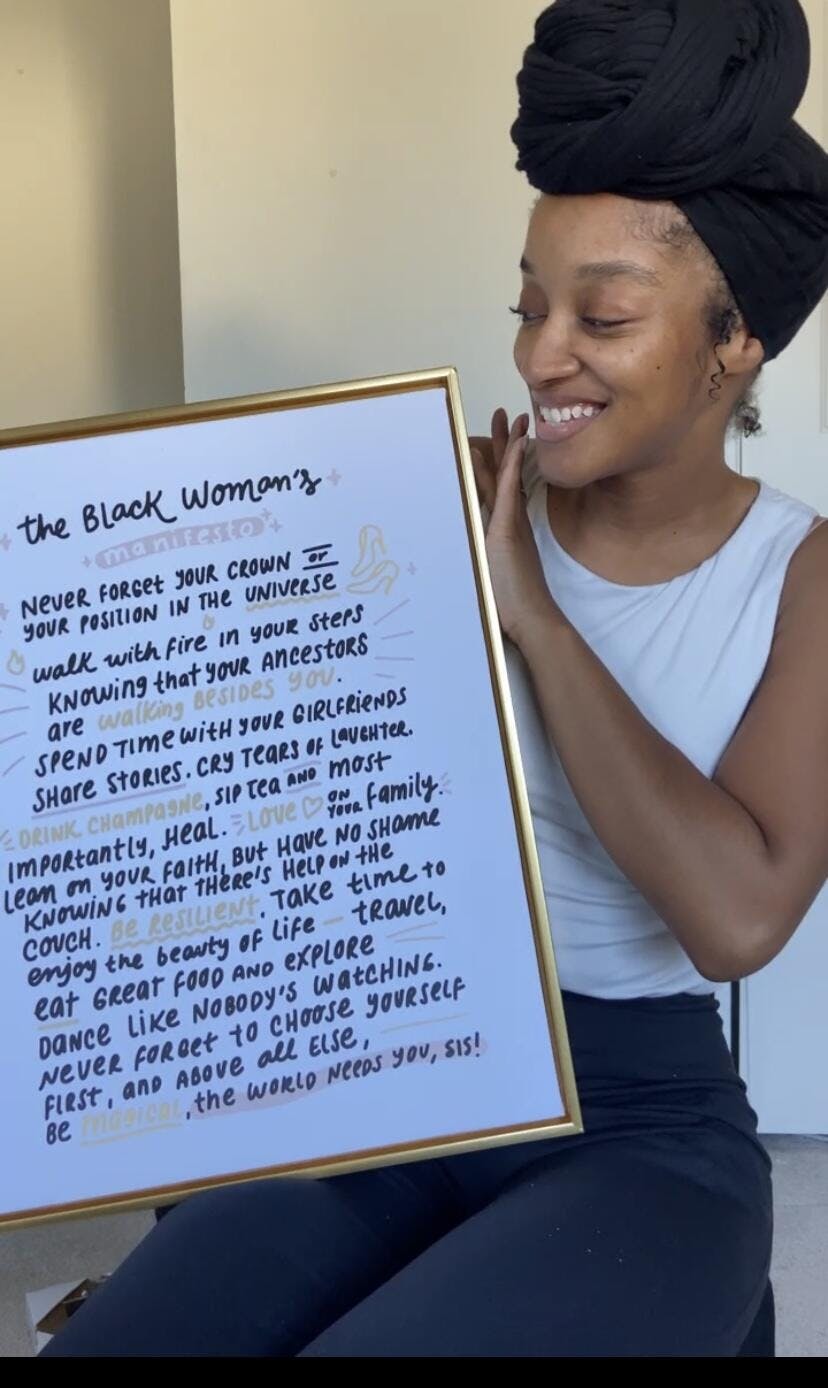 the BLACK WOMAN'S
manifesto
NEVER FORGET YOUR CROWN OR
YOUR POSITION IN THE UNIVERSE
walk with fire in your steps
KNOWING that YOUR ANCESTORS
are walking BESIDES YOU.
SPEND TIME WITH YOUR GIRLFRIENDS
SHARE STORIES. CRY TEARS OF LAUGHTER.
DRINK CHAMPAGNE, SIP TEA AND most
IMPORTANTLY, HEAL. LOVE ON YOUR family.
LEAN ON YOUR FAITH, BUT HAVE NO SHAME
KNOWING THAT THERE'S HELP ON THE
COUCH. BE RESILIENT. TAKE time to
enjoy the beauty OF LIFE — tRAVEL,
eat GREAT FOOD AND EXPLORE
DANCE LIKE NOBODY'S WATCHING.
NEVER FORGET TO CHOOSE YOURSELF
FIRST, AND ABOVE all ELSE,
BE magical, the WORLD NEEDS YOU, SIS!